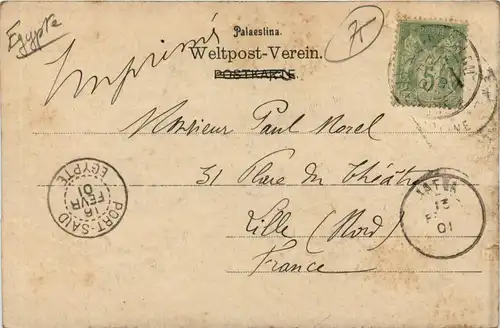 Egypte
75
Palaestina.
Imprimés
Weltpost-Verein.
POSTKARTE
Monsieur Paul Morel
31 Place du Théâtre
Lille (Nord)
France
PORT-SAID
16
FEVR
01
EGYPTE
JAFFA
13
01